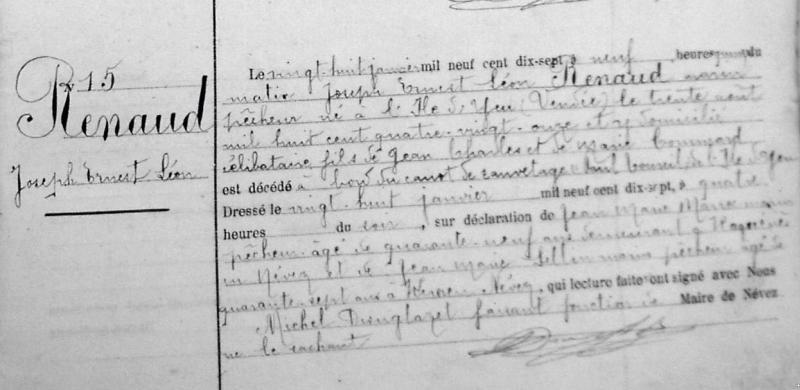 15
Renaud
Joseph Ernest Léon
Le vingt-huit janvier mil neuf cent dix-sept à neuf heures du
matin Joseph Ernest Léon Renaud marin
pêcheur né à l'Ile d'Yeu (Vendée) le trente août
mil huit cent quatre-vingt-onze et y domicilié
célibataire fils de Jean Charles et de Marie
est décédé à bord du canot de sauvetage de l'Ile d'Yeu
Dressé le vingt huit janvier mil neuf cent dix-sept, à quatre
heures du soir, sur déclaration de Jean Marie marin
pêcheur âgé de quarante-neuf ans demeurant à
en Névez et de Jean Marie marin pêcheur âgé de
quarante-sept ans à Névez, qui lecture faite ont signé avec Nous
Michel faisant fonction de Maire de Névez
ne le sachant